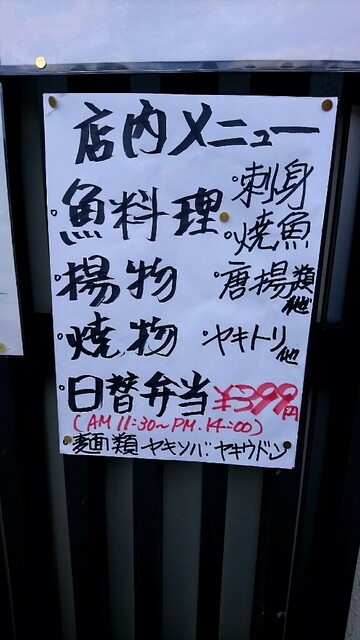 店内メニュー
・魚料理 ・刺身
・焼魚
・揚物 ・唐揚類他
・焼物 ・ヤキトリ他
・日替弁当 ¥399円
(AM 11:30~PM.14:00)
・麺類 ヤキソバ・ヤキウドン